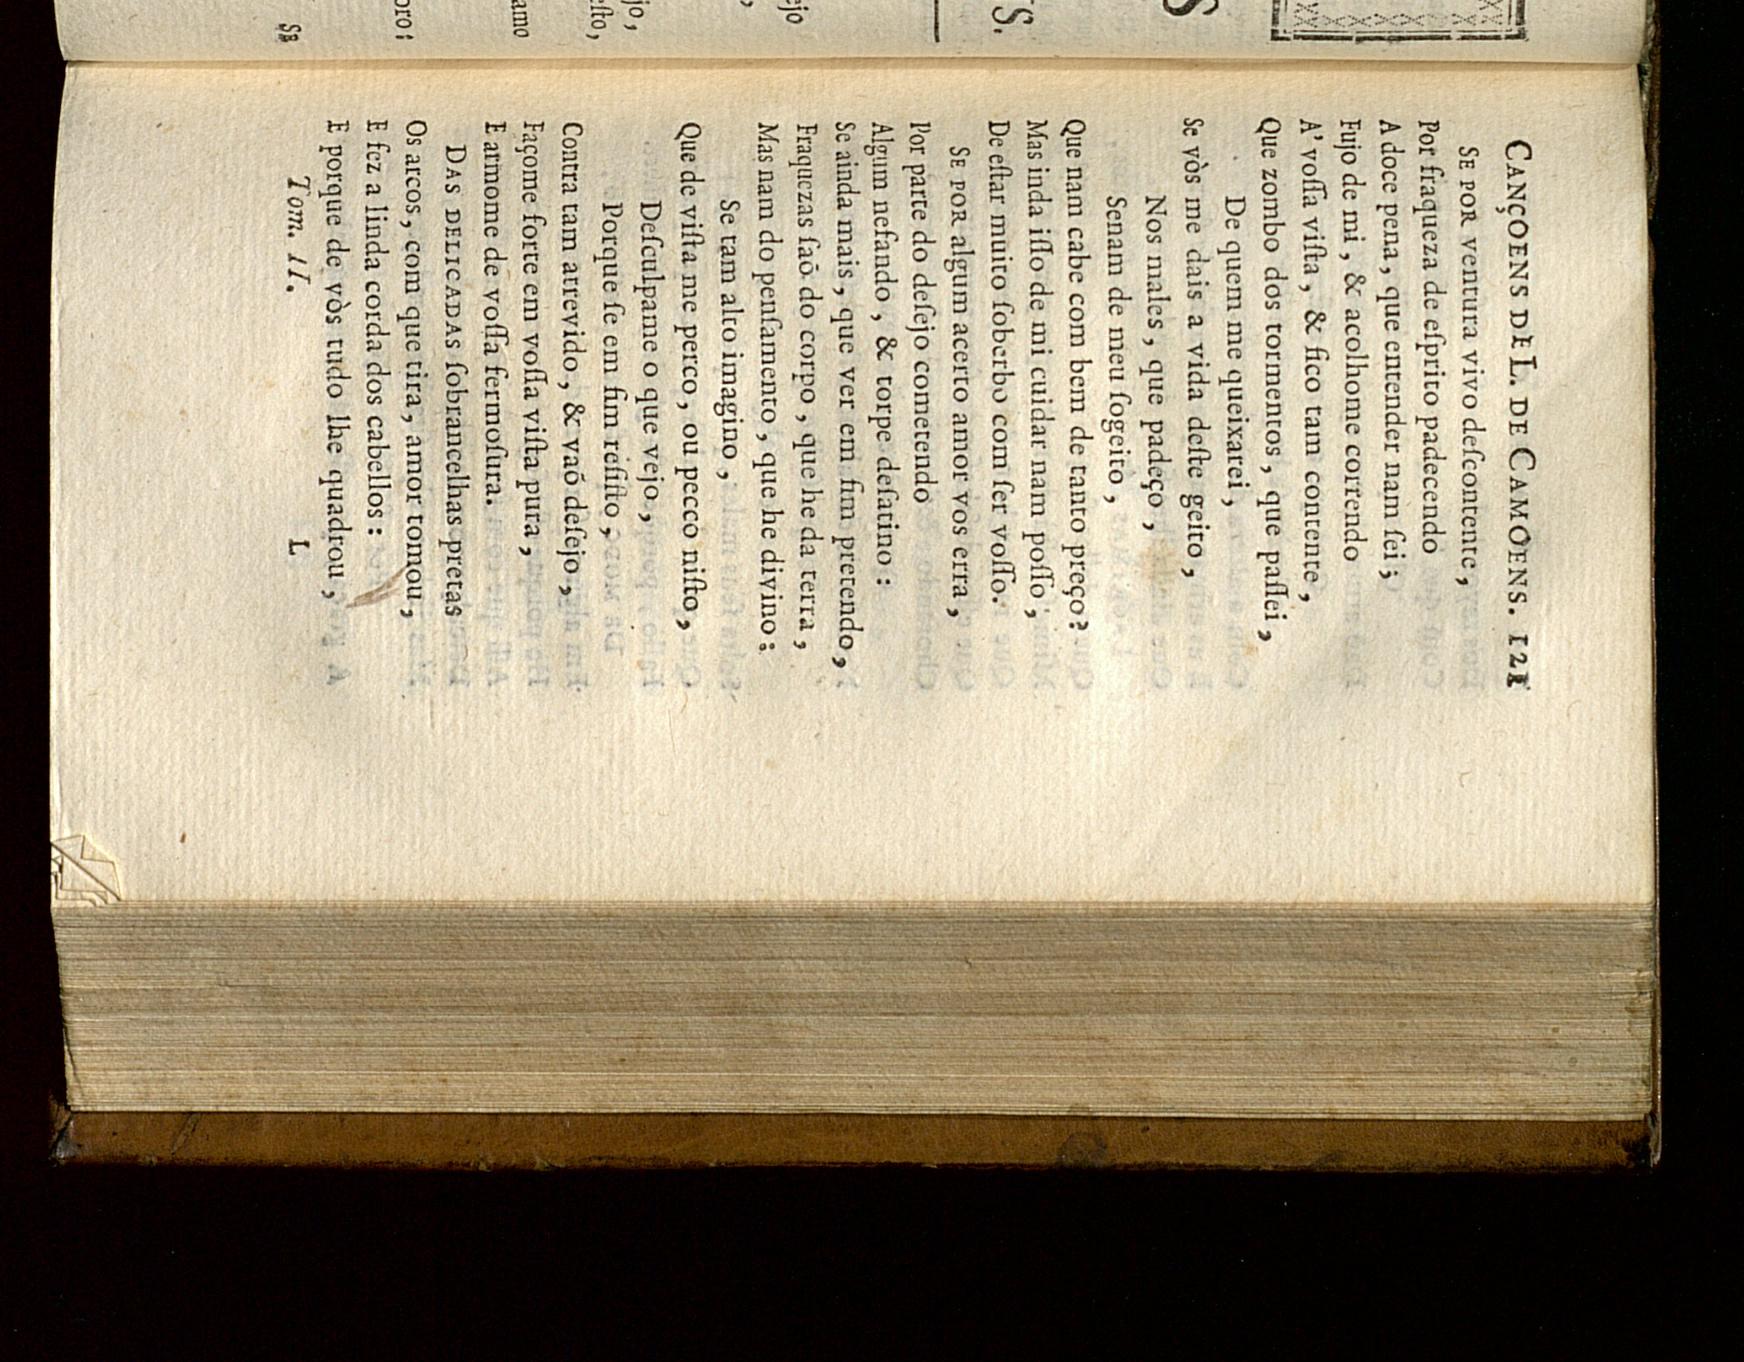 CANÇOENS DE L. DE CAMOENS. 121
SE POR ventura vivo deſcontente,
Por fraqueza de eſprito padecendo
A doce pena, que entender nam ſei;
Fujo de mi, & acolhome correndo
A' voſſa viſta, & fico tam contente,
Que zombo dos tormentos, que paſſei,
De quem me queixarei,
Se vòs me dais a vida deſte geito,
Nos males, que padeço,
Senam de meu ſogeito,
Que nam cabe com bem de tanto preço?
Mas inda iſſo de mi cuidar nam poſſo,
De eſtar muito ſoberbo com ſer voſſo.
SE POR algum acerto amor vos erra,
Por parte do deſejo cometendo
Algum nefando, & torpe deſatino:
Se ainda mais, que ver em fim pretendo,
Fraquezas ſaõ do corpo, que he da terra,
Mas nam do penſamento, que he divino:
Se tam alto imagino,
Que de viſta me perco, ou pecco niſto,
Deſculpame o que vejo,
Porque ſe em fim reſiſto,
Contra tam atrevido, & vaõ deſejo,
Façome forte em voſſa viſta pura,
E armome de voſſa fermoſura.
DAS DELICADAS ſobrancelhas pretas
Os arcos, com que tira, amor tomou,
E fez a linda corda dos cabellos:
E porque de vòs tudo lhe quadrou,
Tom. II. L